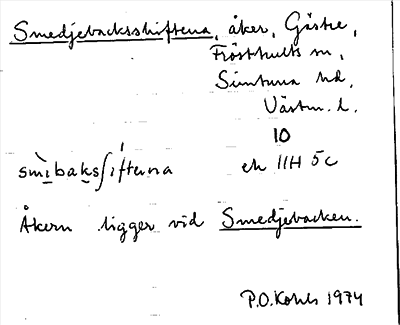 Smedjebacksskiftena, åker, Gästre,
Frösthults sn,
Simtuna hd,
Västm. l.
10
smìbaksʃífterna ek 11H 5c
Åkern ligger vid Smedjebacken.
P.O. Kohls 1974